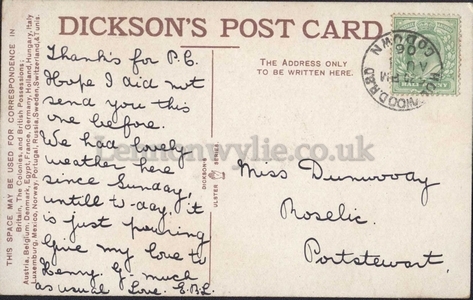 DICKSON'S POST CARD
THIS SPACE MAY BE USED FOR CORRESPONDENCE IN
Britain, The Colonies, and British Possessions;
Austria, Belgium, Denmark, Egypt, France, Germany, Holland, Hungary, Italy
Luxemburg, Mexico, Norway, Portugal, Russia, Sweden, Switzerland, & Tunis.
Thanks for P.C.
Hope I did not
send you this
one before.
We had lovely
weather here
since Sunday,
untill to-day, it
is just pouring
Give my love to
Henny. G. much
as usual Love. E.B.L.
DICKSONS
ULSTER SERIES
THE ADDRESS ONLY
TO BE WRITTEN HERE.
Miss Dunwoody
Roselic.
Portstewart.
HOLYWOOD. R.S.O
CO. DOWN
PM
AU
06
HALFPENNY
Lemonwylie.co.uk